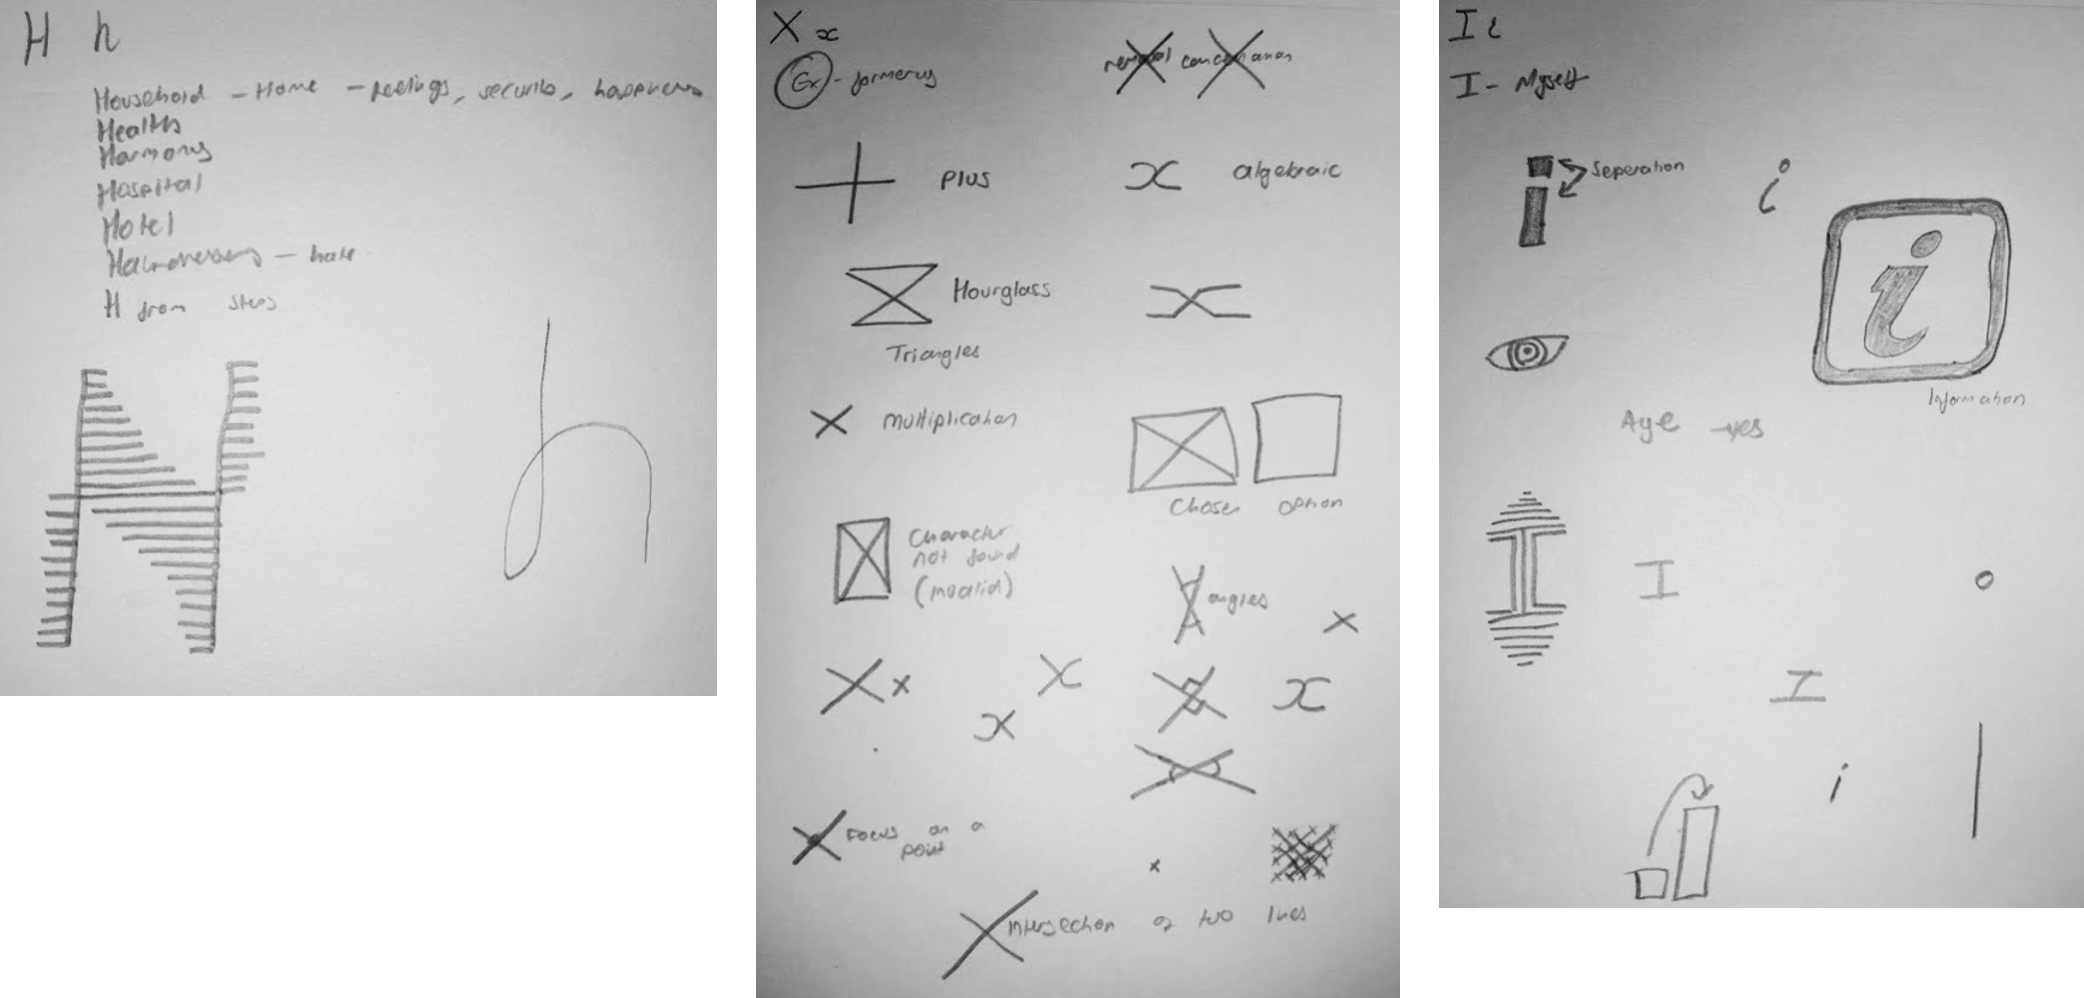 H h
Household - Home - feelings, security, happiness
Health
Harmony
Hospital
Hotel
Hairdressers - hair
H from steps
h
X x
Ex - formerly
removal cancellation
Plus
x algebraic
Hourglass
Triangles
multiplication
Chosen option
Character
not found
(invalid)
angles
x
X x
x
x
x
Focus on a
point
x
Intersection of two lines
I i
I - Myself
i Seperation
i
i
Information
Aye - yes
I
I
I
i